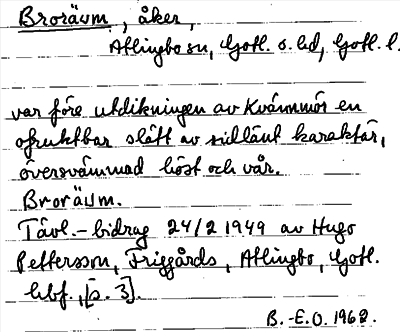 Broräum, åker,
Atlingbo sn, Gotl. s. hd, Gotl. l.
var före utdikningen av Kvännmör en
ofruktbar slått av sidlänt karaktär,
översvämmad höst och vår.
Broräum.
Tävl.-bidrag 24/2 1949 av Hugo
Pettersson, Friggårds, Atlingbo, Gotl.
hbf., [s. 3].
B.-E.O. 1968.